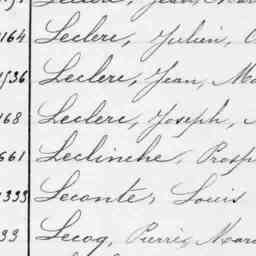 164 Leclerc, Julien,
1536 Leclerc, Jean, Ma
168 Leclerc, Joseph,
661 Leclinche, Prosp
1333 Leconte, Louis
33 Lecoq, Pierre, Mar